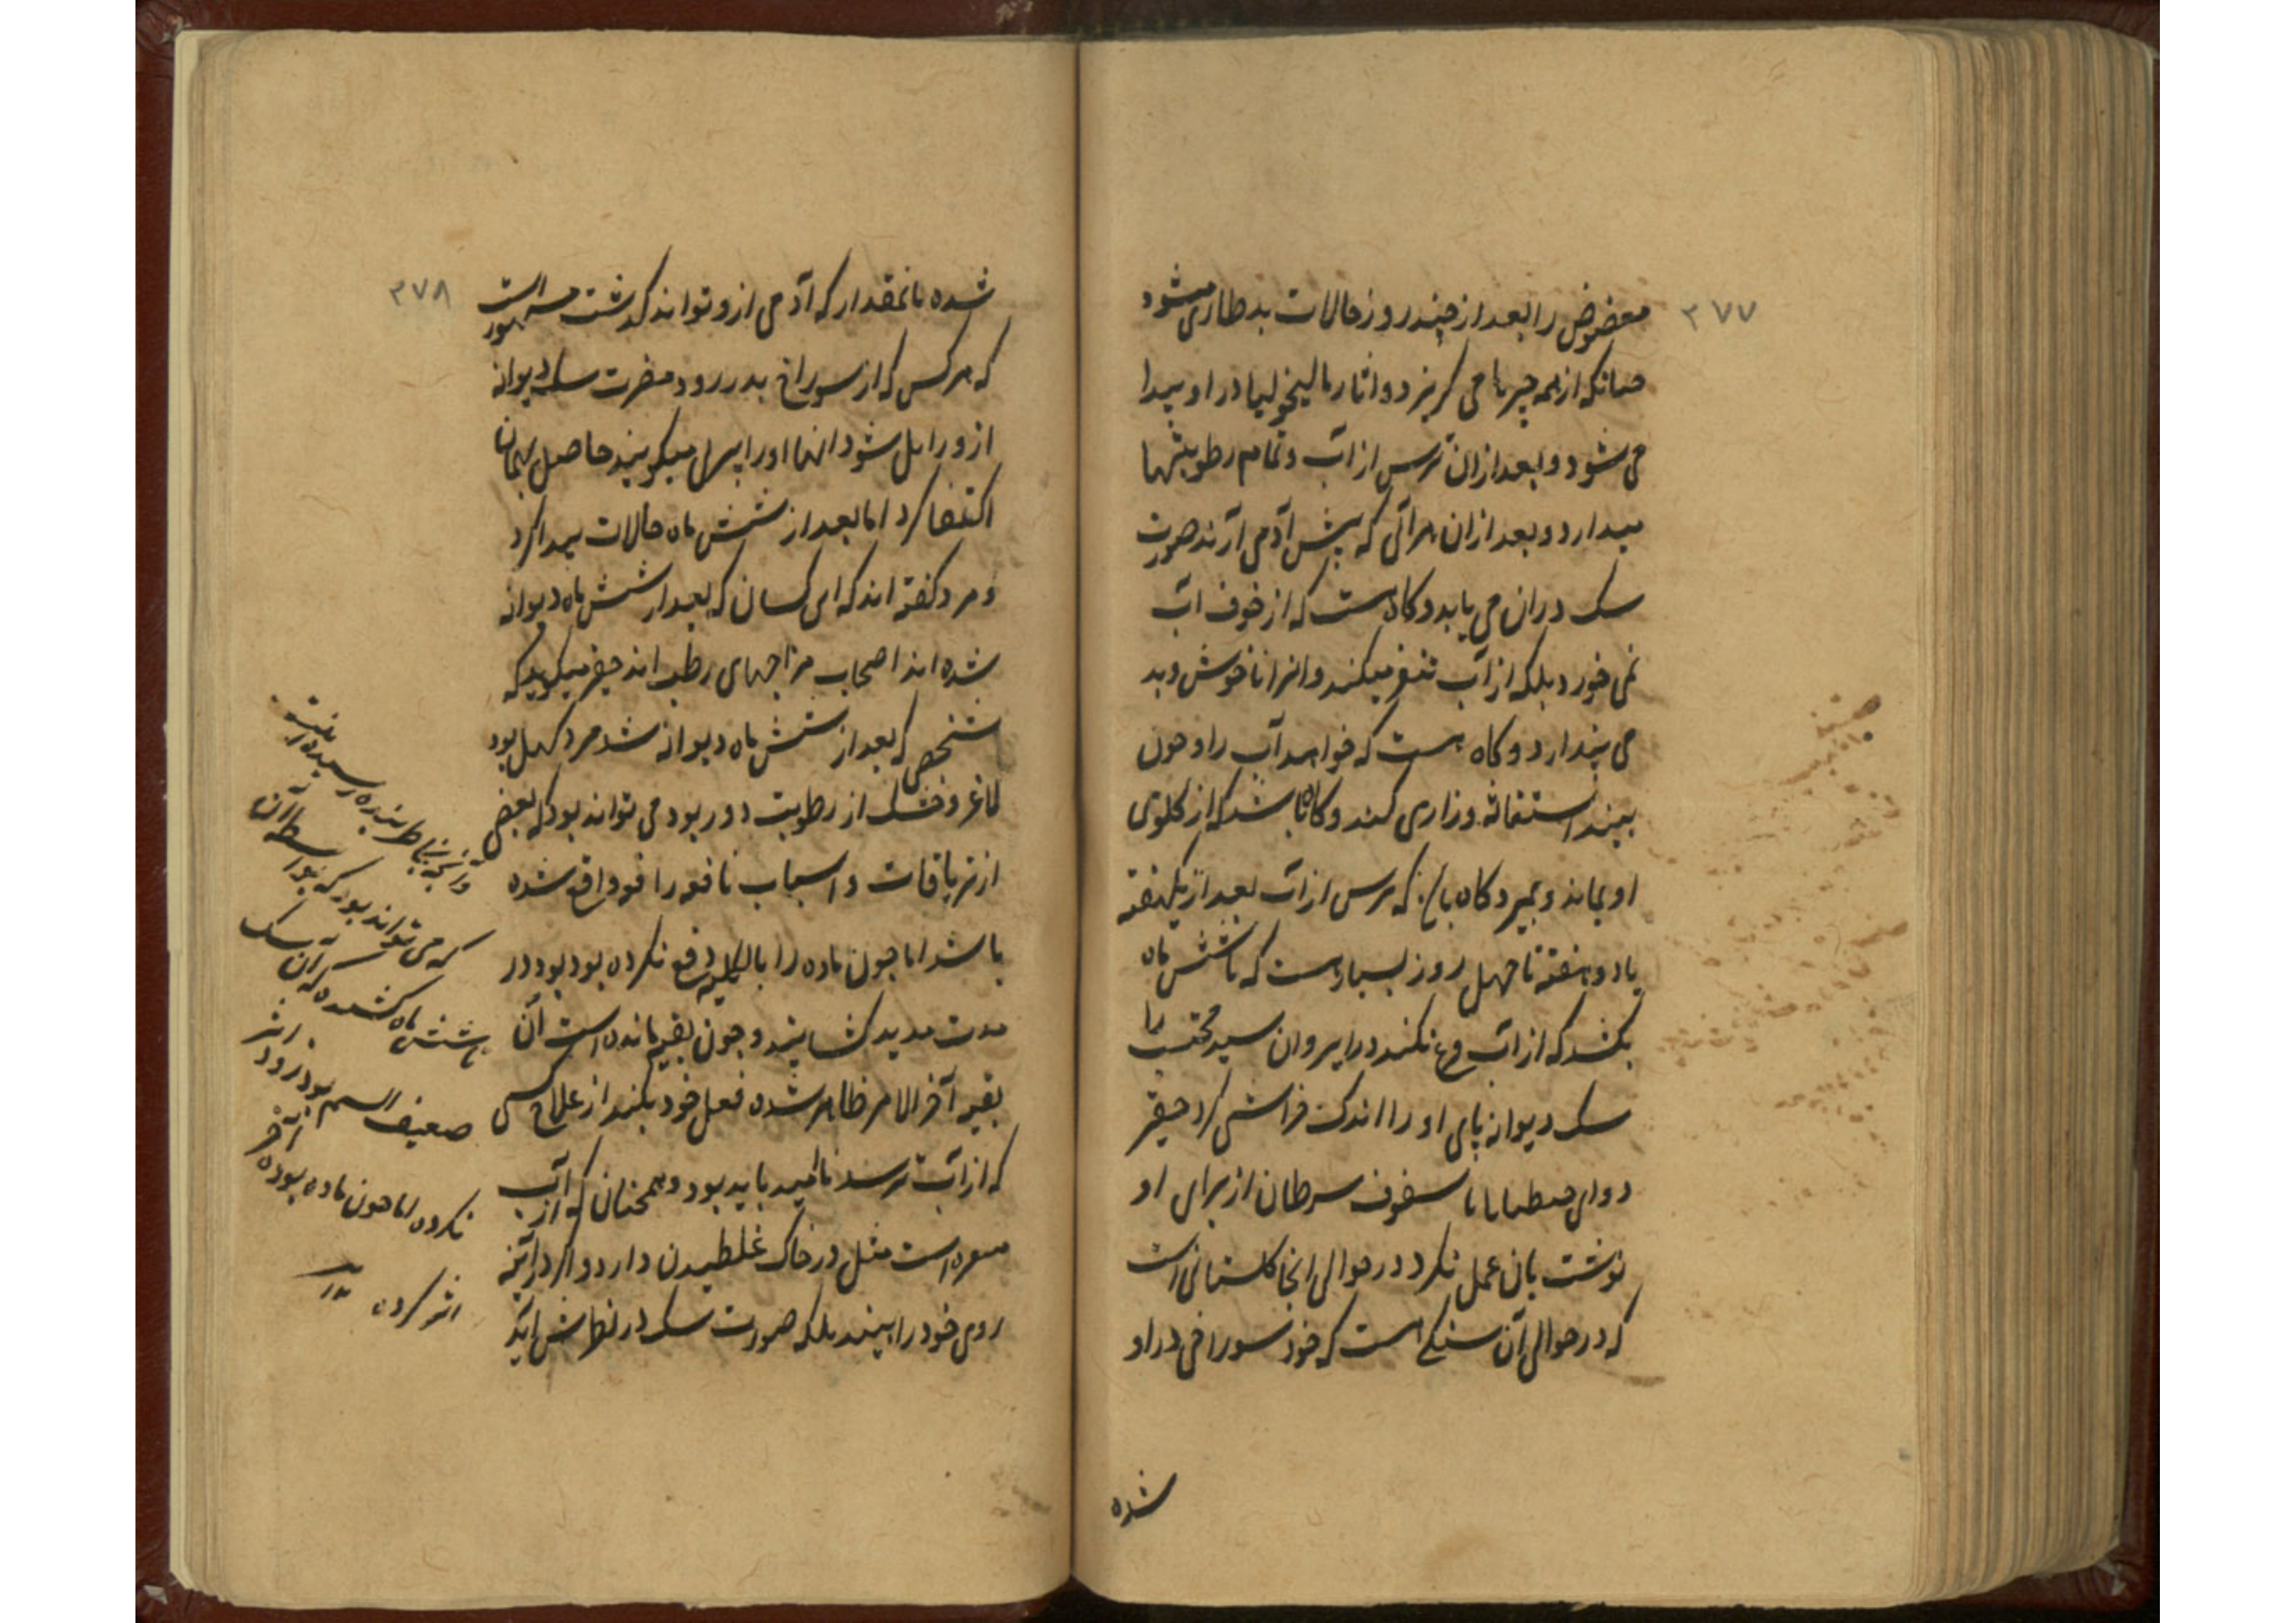 ۳۷۷
معضوض را بعد از چند روز حالات بد طاری میشود
چنانکه از همه چیزها می گریزد و اثار مالیخولیا در او پیدا
می شود و بعد ازان ترس از آب و تمام رطوبتها
میدارد و بعد ازان هر آبی که پیش آدمی آرند صورت
سک دران می یابد و کاه هست که از خوف آب
نمی خورد بلکه از آب تنفر میکند و انرا ناخوش و بد
می پندارد و کاه هست که خواهد آب را و چون
بیند استغاثه و زاری کند و کاه باشد که از کلوی
او بماند و بمیرد و کاه باشد که ترس از آب بعد از یکهفته
یا دو هفته تا چهل روز بسیار هست که تا شش ماه
بکشد که از آب نکند در ایروان سید محتسب را
سک دیوانه پای او را اندک خراشی کرد حقیر
دوای جنطیانا با سفوف سرطان از برای او
نوشت بان عمل نکرد در حوالی انجا کلستانی است
که در حوالی آن سنکی هست که خود سوراخی در او
شده
۳۷۸
شده بانمقدار که آدمی ازو تواند کدشت مشهور است
که هر کس که از سوراخ بدر رود مضرت سک دیوانه
ازو زایل شود انها او را میکویند حاصل بهمان
اکتفا کرد اما بعد از شش ماه حالات پیدا کرد
و مرد کفته اند که این کسان که بعد از شش ماه دیوانه
شده اند اصحاب مزاجهای رطب اند حقیر میکوید که
شخصی که بعد از شش ماه دیوانه شد مرد کهل بود
لاغر و خشک از رطوبت دور بود می تواند بود که بعضی
از تریاقات و اسباب نافعه را واقع شده
باشد اما چون ماده را بالکلیه دفع نکرده بود بود در
مدت مدید کشانید و چون بقیه مانده است آن
بقیه آخر الامر ظاهر شده فعل خود بکند از علاج کسی
که از آب ترسد ناامید باید بود و همچنان که از آب
است مثل در خاک غلطیدن دارد و اکر در آینه
روی خود را ببیند بلکه صورت سک در نظرش آید
وانچه بخاطر بنده رسیده اینست
که می تواند بود که بواسطه آن
تا شش ماه کشیده که آن سک
ضعیف السم بود زود اثر
نکرده اما چون ماده بوده آخر
اثر کرده